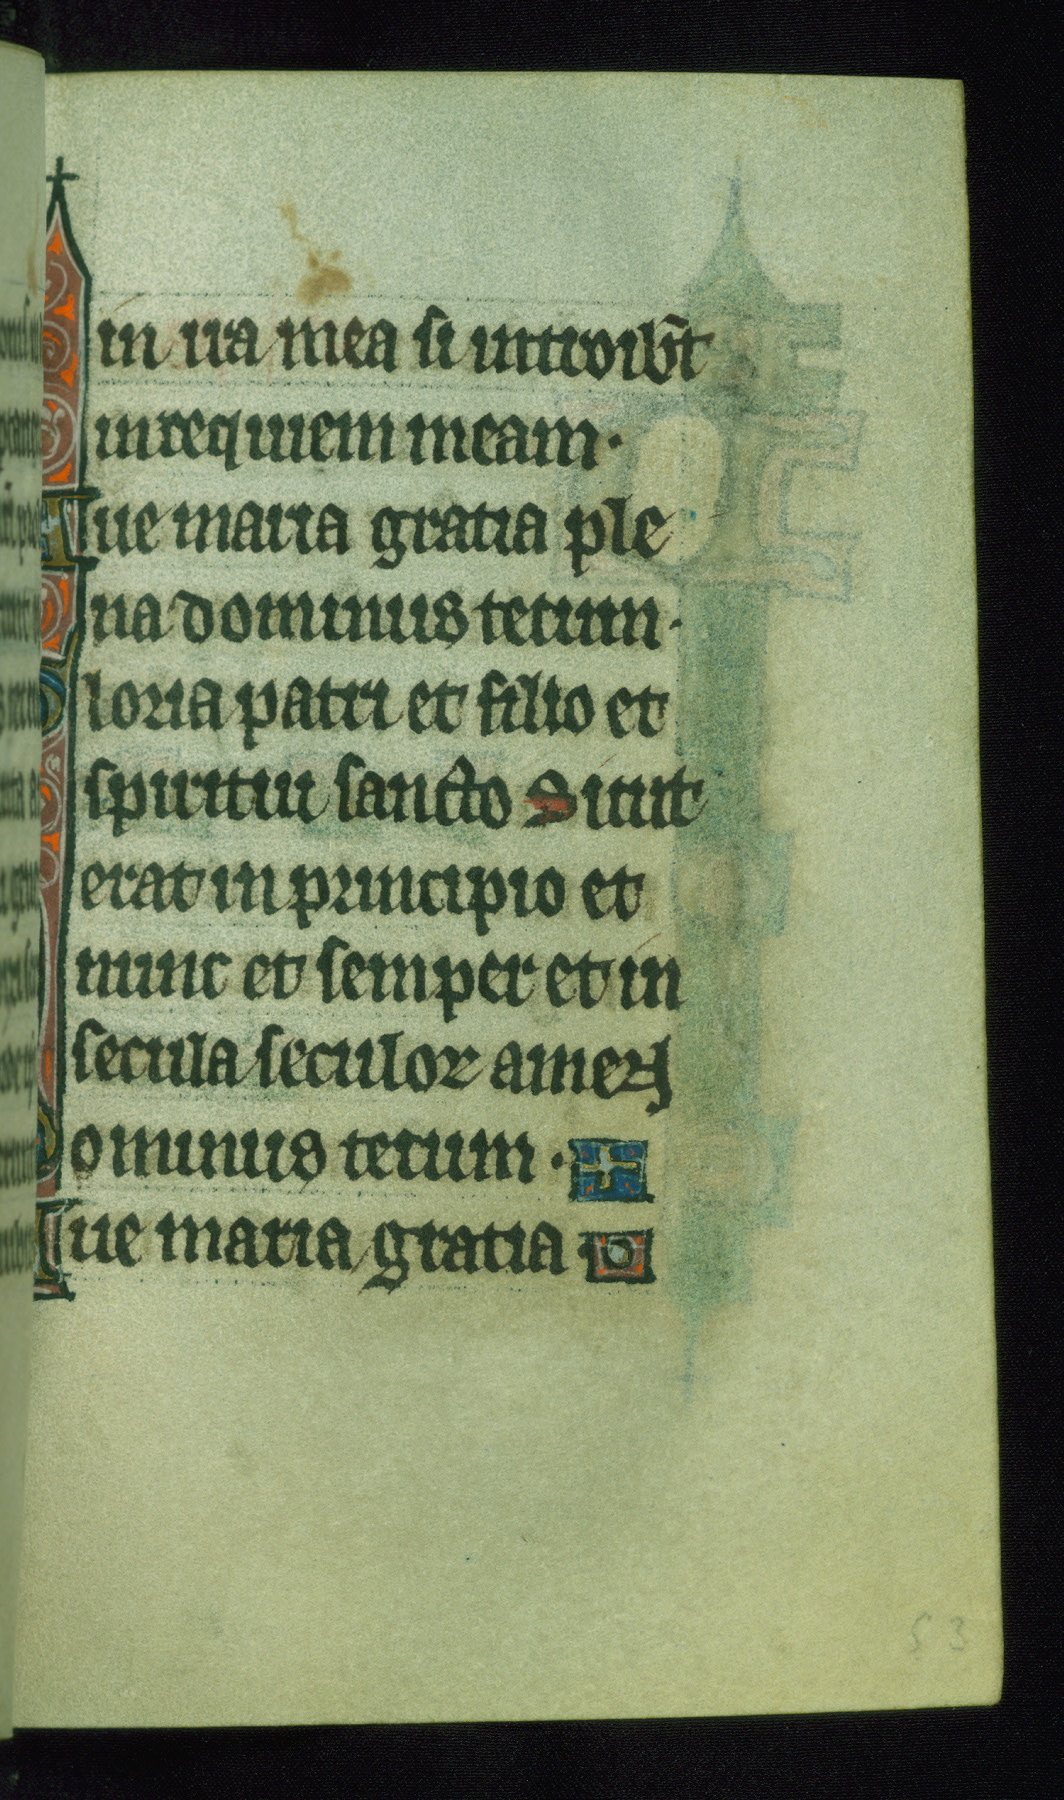 in ira mea si introibūt
in requiem meam·
Aue maria gratia ple
na dominus tecum·
Gloria patri et filio et
spiritui sancto Sicut
erat in principio et
nunc et semper et in
secula seculoꝝ amen
Dominus tecum·
Aue maria gratia·
53